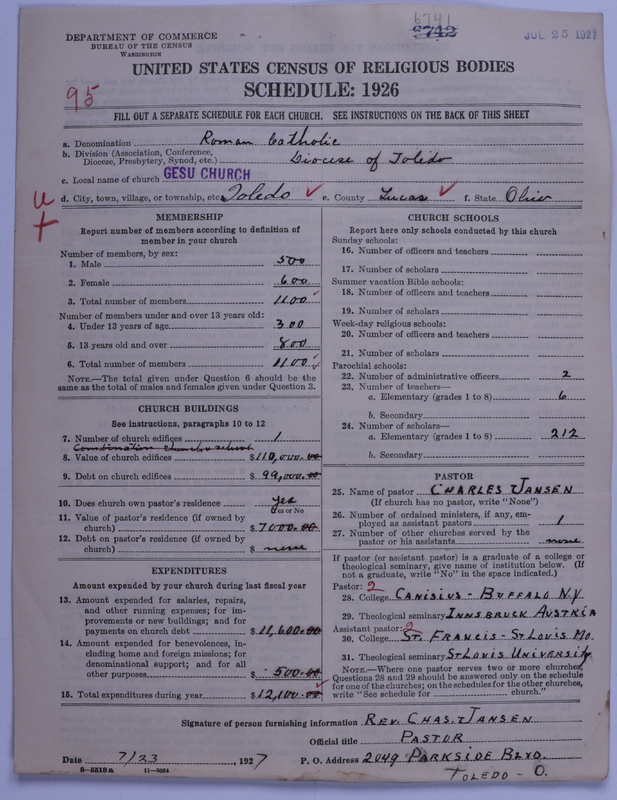 6741
5742
JUL 25 1927
DEPARTMENT OF COMMERCE
BUREAU OF THE CENSUS
WASHINGTON
UNITED STATES CENSUS OF RELIGIOUS BODIES
SCHEDULE: 1926
95
FILL OUT A SEPARATE SCHEDULE FOR EACH CHURCH. SEE INSTRUCTIONS ON THE BACK OF THIS SHEET
a. Denomination Roman Catholic
b. Division (Association, Conference, Diocese, Presbytery, Synod, etc.) Diocese of Toledo
c. Local name of church GESU CHURCH
d. City, town, village, or township, etc. Toledo ✓ e. County Lucas ✓ f. State Ohio
u
+
MEMBERSHIP
Report number of members according to definition of
member in your church
Number of members, by sex:
1. Male 500
2. Female 600
3. Total number of members 1100 ✓
Number of members under and over 13 years old:
4. Under 13 years of age 300
5. 13 years old and over 800
6. Total number of members 1100 ✓
NOTE.—The total given under Question 6 should be the
same as the total of males and females given under Question 3.
CHURCH BUILDINGS
See instructions, paragraphs 10 to 12
7. Number of church edifices 1
Combination church & school
8. Value of church edifices $110,000.00
9. Debt on church edifices $ 99,000.00
10. Does church own pastor's residence yes
Yes or No
11. Value of pastor's residence (if owned by
church) $ 7000.00
12. Debt on pastor's residence (if owned by
church) $ none
EXPENDITURES
Amount expended by your church during last fiscal year
13. Amount expended for salaries, repairs,
and other running expenses; for im-
provements or new buildings; and for
payments on church debt $ 11,600.00
14. Amount expended for benevolences, in-
cluding home and foreign missions; for
denominational support; and for all
other purposes $ 500.00
15. Total expenditures during year $12,100.00 ✓
CHURCH SCHOOLS
Report here only schools conducted by this church
Sunday schools:
16. Number of officers and teachers
17. Number of scholars
Summer vacation Bible schools:
18. Number of officers and teachers
19. Number of scholars
Week-day religious schools:
20. Number of officers and teachers
21. Number of scholars
Parochial schools:
22. Number of administrative officers 2
23. Number of teachers—
a. Elementary (grades 1 to 8) 6
b. Secondary
24. Number of scholars—
a. Elementary (grades 1 to 8) 212
b. Secondary
PASTOR
25. Name of pastor CHARLES T JANSEN
(If church has no pastor, write "None")
26. Number of ordained ministers, if any, em-
ployed as assistant pastors 1
27. Number of other churches served by the
pastor or his assistants none
If pastor (or assistant pastor) is a graduate of a college or
theological seminary, give name of institution below. (If
not a graduate, write "No" in the space indicated.)
Pastor: 2
28. College CANISIUS - BUFFALO N.Y.
29. Theological seminary INNSBRUCK AUSTRIA
Assistant pastor: 2
30. College ST. FRANCIS - ST LOUIS MO.
31. Theological seminary ST LOUIS UNIVERSITY
NOTE.—Where one pastor serves two or more churches,
Questions 28 and 29 should be answered only on the schedule
for one of the churches; on the schedules for the other churches,
write "See schedule for church."
Signature of person furnishing information REV. CHAS. T JANSEN
Official title PASTOR
Date 7/23, 1927 P. O. Address 2049 PARKSIDE BLVD.
8—5518a 11—9054
TOLEDO - O.